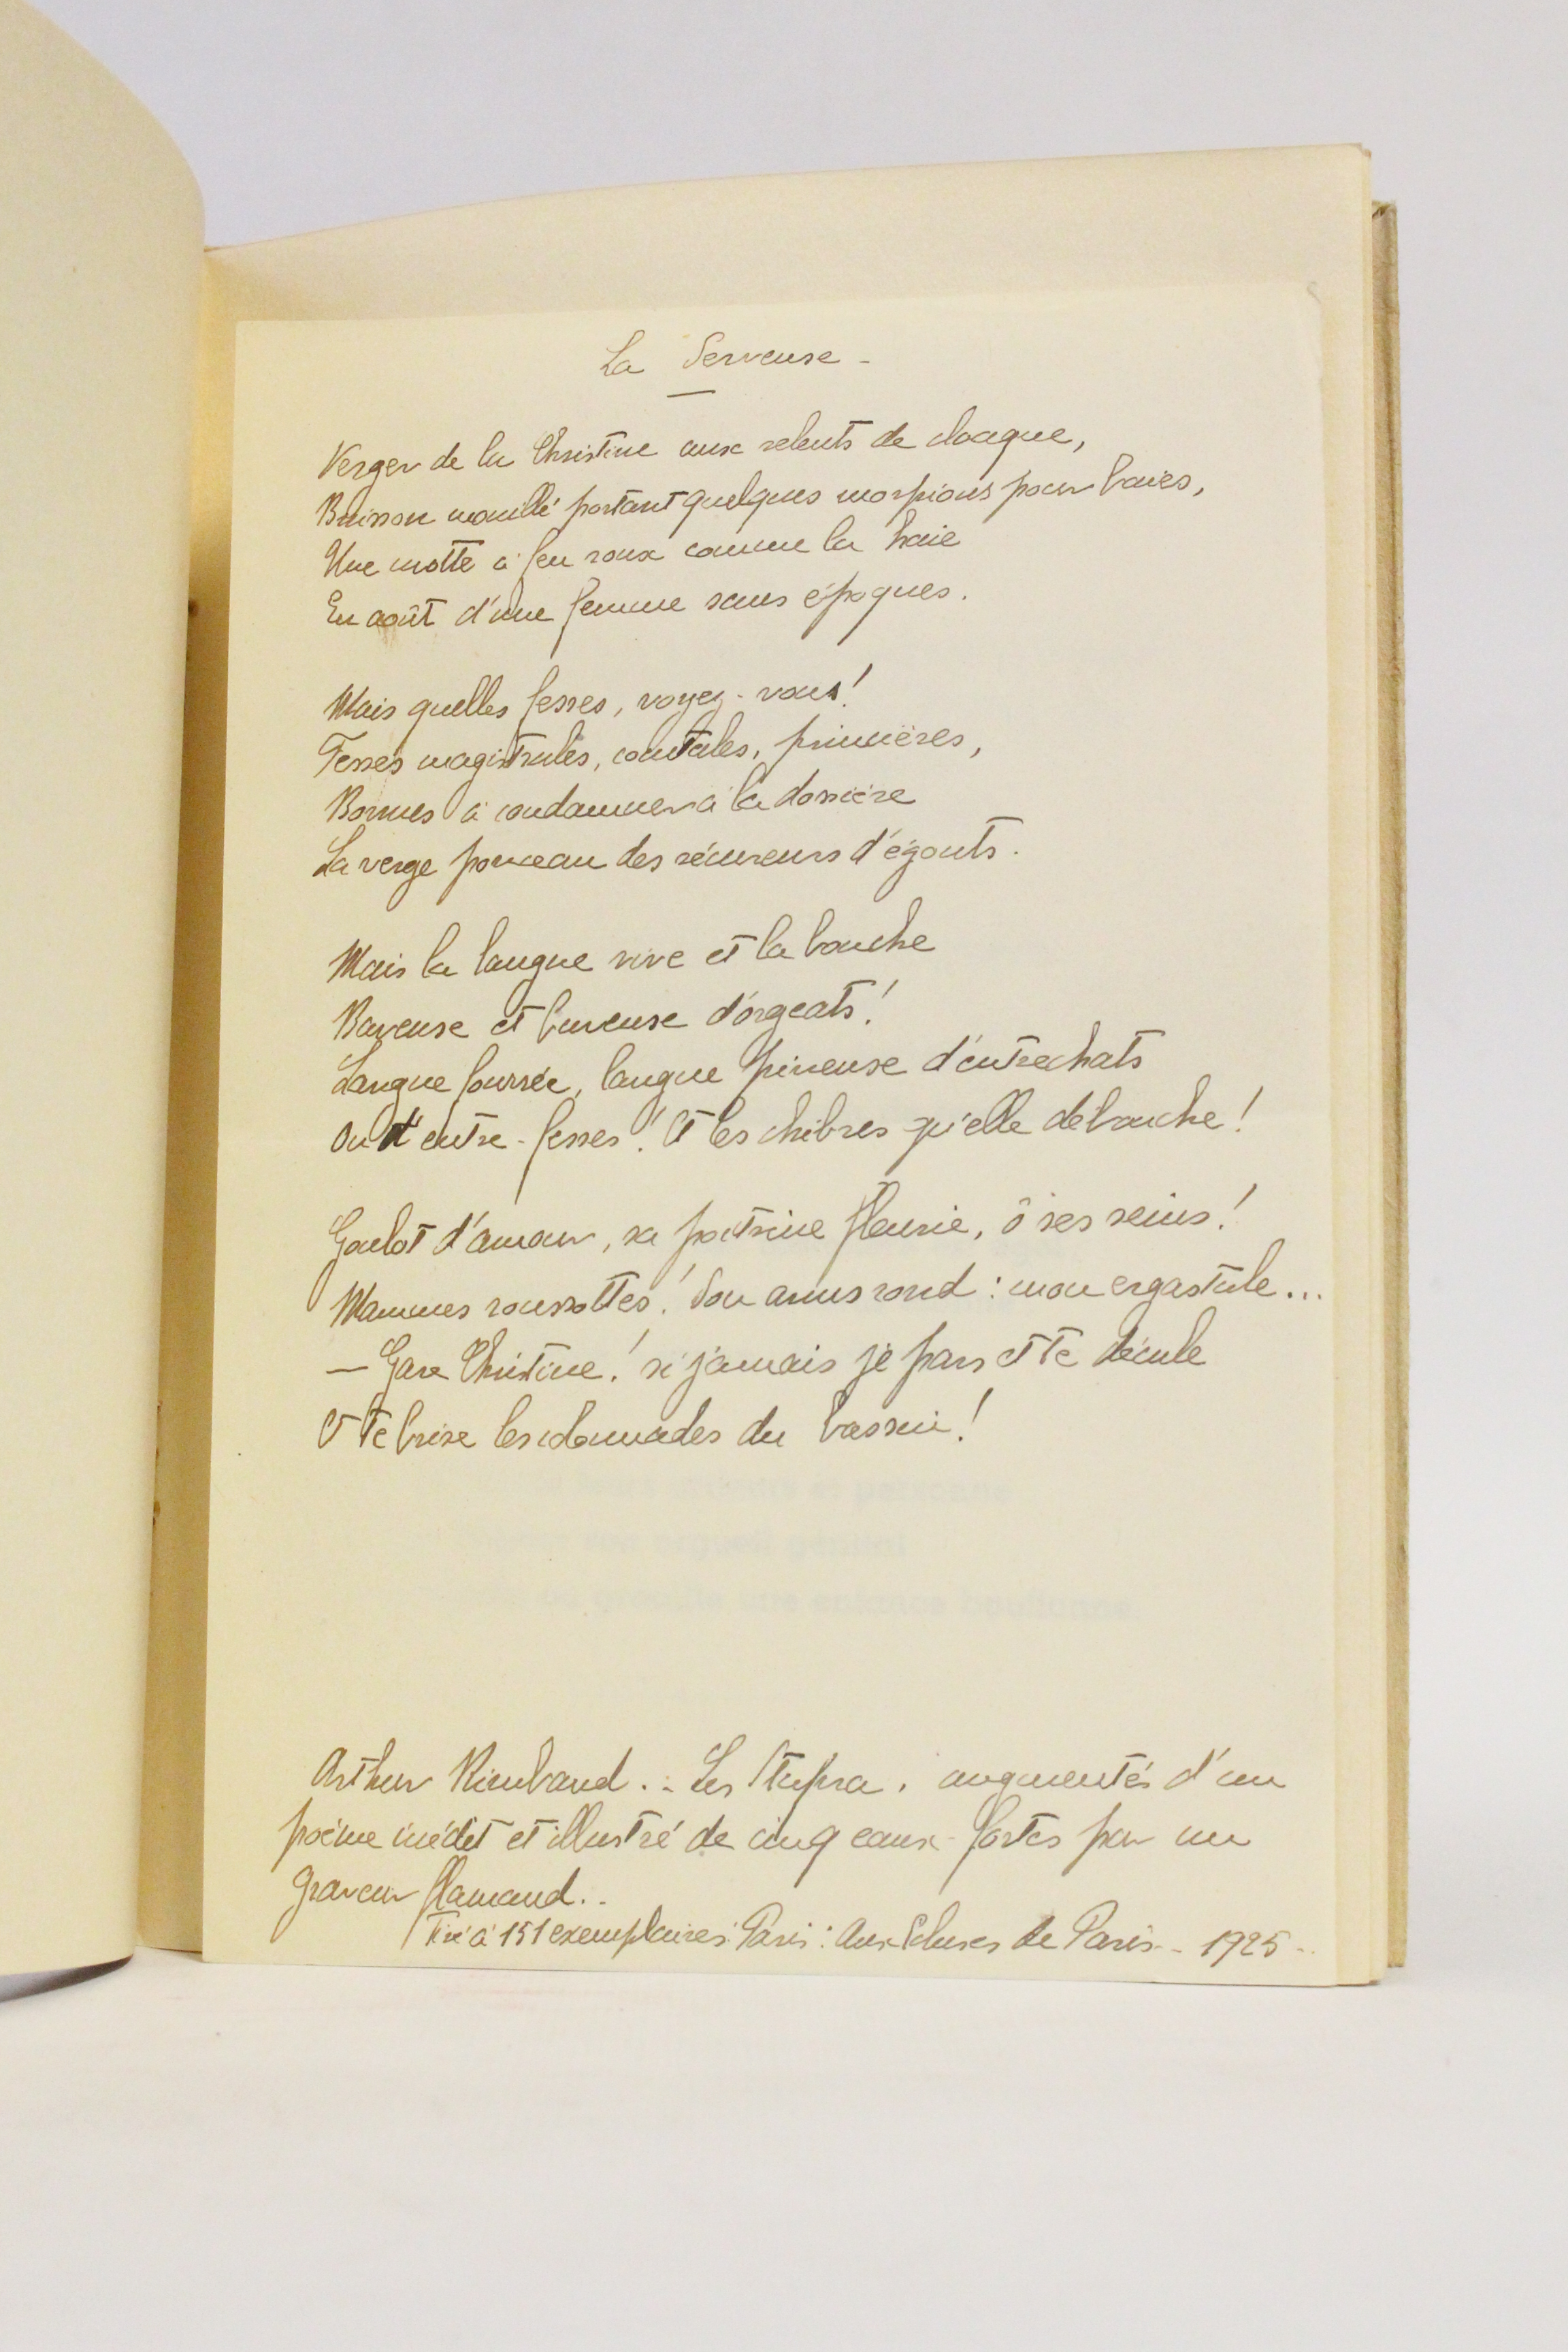 La Serveuse -
Verger de la Christine aux relents de cloaque,
Buisson mouillé portant quelques morpions pour baies,
Une motte à feu roux comme la haie
En août d'une femme sans époques.
Mais quelles fesses, voyez-vous!
Fesses magistrales, comtales, princières,
Bonnes à condamner à la dossière
La verge ponceau des récureurs d'égouts.
Mais la langue vive et la bouche
Baveuse et buveuse d'orgeats!
Langue fourrée, langue pineuse d'entrechats
Ou d'entre-fesses! Et les chibres qu'elle débauche!
Goulot d'amour, sa poitrine fleurie, ô ses seins!
Mammes roussottes! Son anus rond: mon ergastule...
— Gare Christine! si jamais je pars et te décule
Et te brise les colonnades du bassin!
Arthur Rimbaud.- Les Stupra, augmentés d'un
poème inédit et illustré de cinq eaux-fortes par un
graveur flamand..
Tiré à 151 exemplaires. Paris: Aux Ecluses de Paris - 1925 -